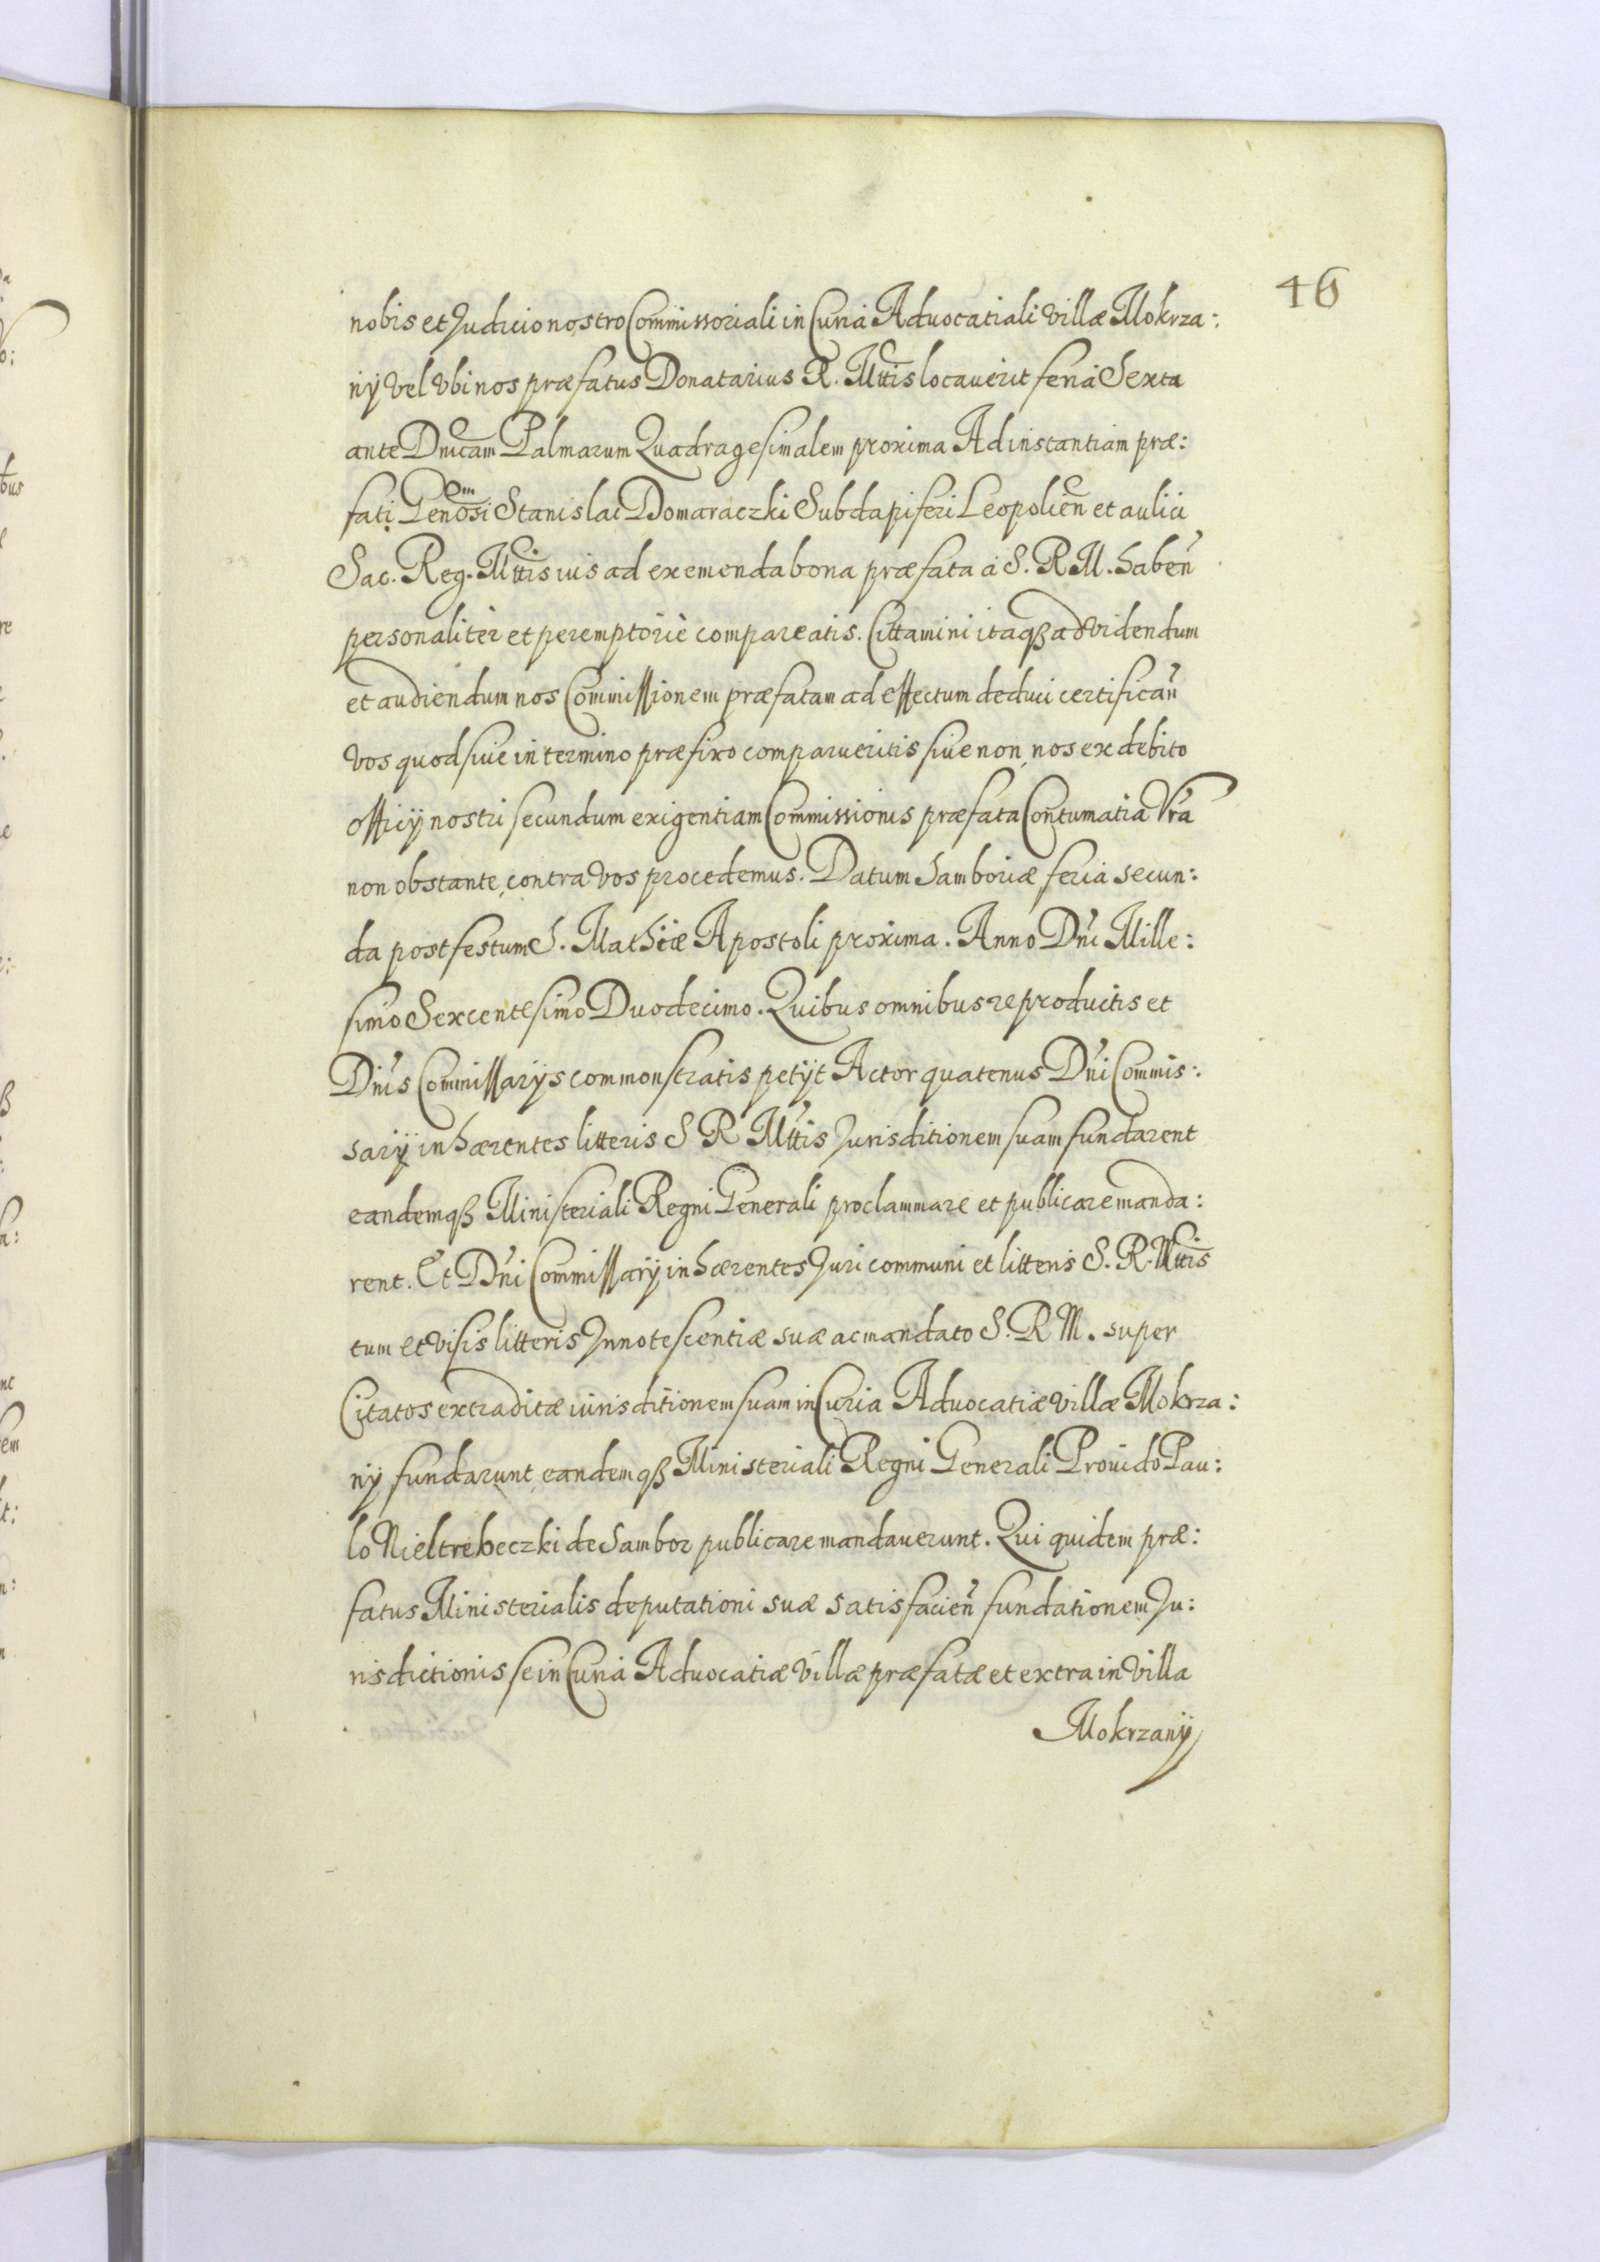 46
nobis et Judicio nostro Commissoriali in Curia Advocatiali villæ Mokrza:
nÿ vel vbi nos præfatus Donatarius R. Mttis locaverit feria Sexta
ante Dnicam Palmarum Quadragesimalem proxima Ad instantiam præ:
fati Genosi Stanislai Domaraczki Subdapiferi Leopolien et aulici
Sac. Reg. Mttis ius ad exemenda bona præfata à S. R M. haben
personaliter et peremptoriè compareatis. Cittamini itaqß ad videndum
et audiendum nos Commissionem præfatam ad effectum deduci certifican
vos quod sive in termino præfixo comparueritis sive non, nos ex debito
officÿ nostri secundum exigentiam Commissionis præfata Contumatia Vra
non obstante, contra vos procedemus. Datum Samboriæ feria secun:
da post festum S. Mathiæ Apostoli proxima. Anno Dni Mille:
simo Sexcentesimo Duodecimo. Quibus omnibus reproductis et
Dnis Commissarÿs commonstratis petÿt Actor quatenus Dni Commis:
sarÿ inhærentes litteris S R Mttis Jurisditionem suam fundarent
eandemqß Ministeriali Regni Generali proclammare et publicare manda:
rent. Et Dni Commissarÿ inhærentes Juri communi et litteris S. R. Mttis
tum et visis litteris Innotescentiæ suæ ac mandato S. R M. super
Citatos extraditæ iurisditionem suam in Curia Advocatiæ villæ Mokrza:
nÿ fundarunt, eandemqß Ministeriali Regni Generali Provido Pau:
lo Nieltrebeczki de Sambor publicare mandaverunt. Qui quidem præ:
fatus Ministerialis deputationi suæ satisfacien fundationem Ju:
risdictionis se in Curia Advocatiæ villæ præfatæ et extra in villa
Mokrzanÿ